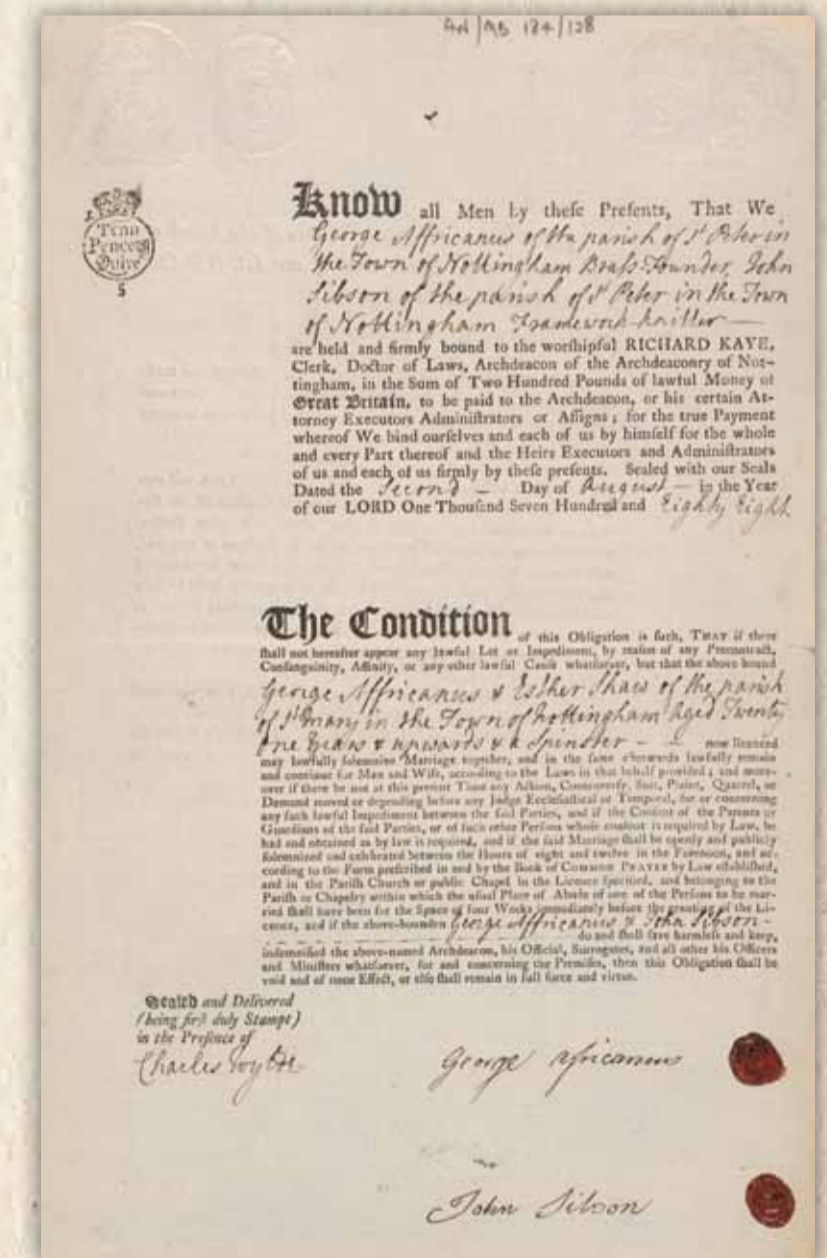 AN/MB 184/128
Tenn
Pence pr
Quire
5
Know all Men by theſe Preſents, That We
George Affricanus of the parish of St Peter in
the Town of Nottingham Braſs Founder, John
Sibson of the parish of St Peter in the Town
of Nottingham Framework-knitter —
are held and firmly bound to the worſhipful RICHARD KAYE,
Clerk, Doctor of Laws, Archdeacon of the Archdeaconry of Not-
tingham, in the Sum of Two Hundred Pounds of lawful Money of
Great Britain, to be paid to the Archdeacon, or his certain At-
torney Executors Adminiſtrators or Aſſigns; for the true Payment
whereof We bind ourſelves and each of us by himſelf for the whole
and every Part thereof and the Heirs Executors and Adminiſtrators
of us and each of us firmly by theſe preſents. Sealed with our Seals
Dated the Second — Day of August — in the Year
of our LORD One Thouſand Seven Hundred and Eighty Eight
The Condition of this Obligation is ſuch, THAT if there
ſhall not hereafter appear any lawful Let or Impediment, by reaſon of any Precontract,
Conſanguinity, Affinity, or any other lawful Cauſe whatſoever, but that the above bound
George Affricanus & Esther Shaw of the parish
of St Mary in the Town of Nottingham aged Twenty
One Years & upwards & a Spinster — — now licenced
may lawfully ſolemnize Marriage together, and in the ſame afterwards lawfully remain
and continue for Man and Wife, according to the Laws in that behalf provided; and more-
over if there be not at this preſent Time any Action, Controverſy, Suit, Plaint, Quarrel, or
Demand moved or depending before any Judge Eccleſiaſtical or Temporal, for or concerning
any ſuch lawful Impediment between the ſaid Parties, and if the Conſent of the Parents or
Guardians of the ſaid Parties, or of ſuch other Perſons whoſe conſent is required by Law, be
had and obtained as by law is required, and if the ſaid Marriage ſhall be openly and publicly
ſolemnized and celebrated between the Hours of eight and twelve in the Forenoon, and ac-
cording to the Form preſcribed in and by the Book of COMMON PRAYER by Law eſtabliſhed,
and in the Pariſh Church or public Chapel in the Licence ſpecified, and belonging to the
Pariſh or Chapelry within which the uſual Place of Abode of one of the Perſons to be mar-
ried ſhall have been for the Space of four Weeks immediately before the granting of the Li-
cence, and if the above-bounden George Affricanus & John Sibson —
do and ſhall ſave harmleſs and keep,
indemnified the above-named Archdeacon, his Official, Surrogates, and all other his Officers
and Miniſters whatſoever, for and concerning the Premiſes, then this Obligation ſhall be
void and of none Effect, or elſe ſhall remain in full force and virtue.
Sealed and Delivered
(being firſt duly Stampt)
in the Preſence of
Charles Wylde
George Africanus
John Sibson